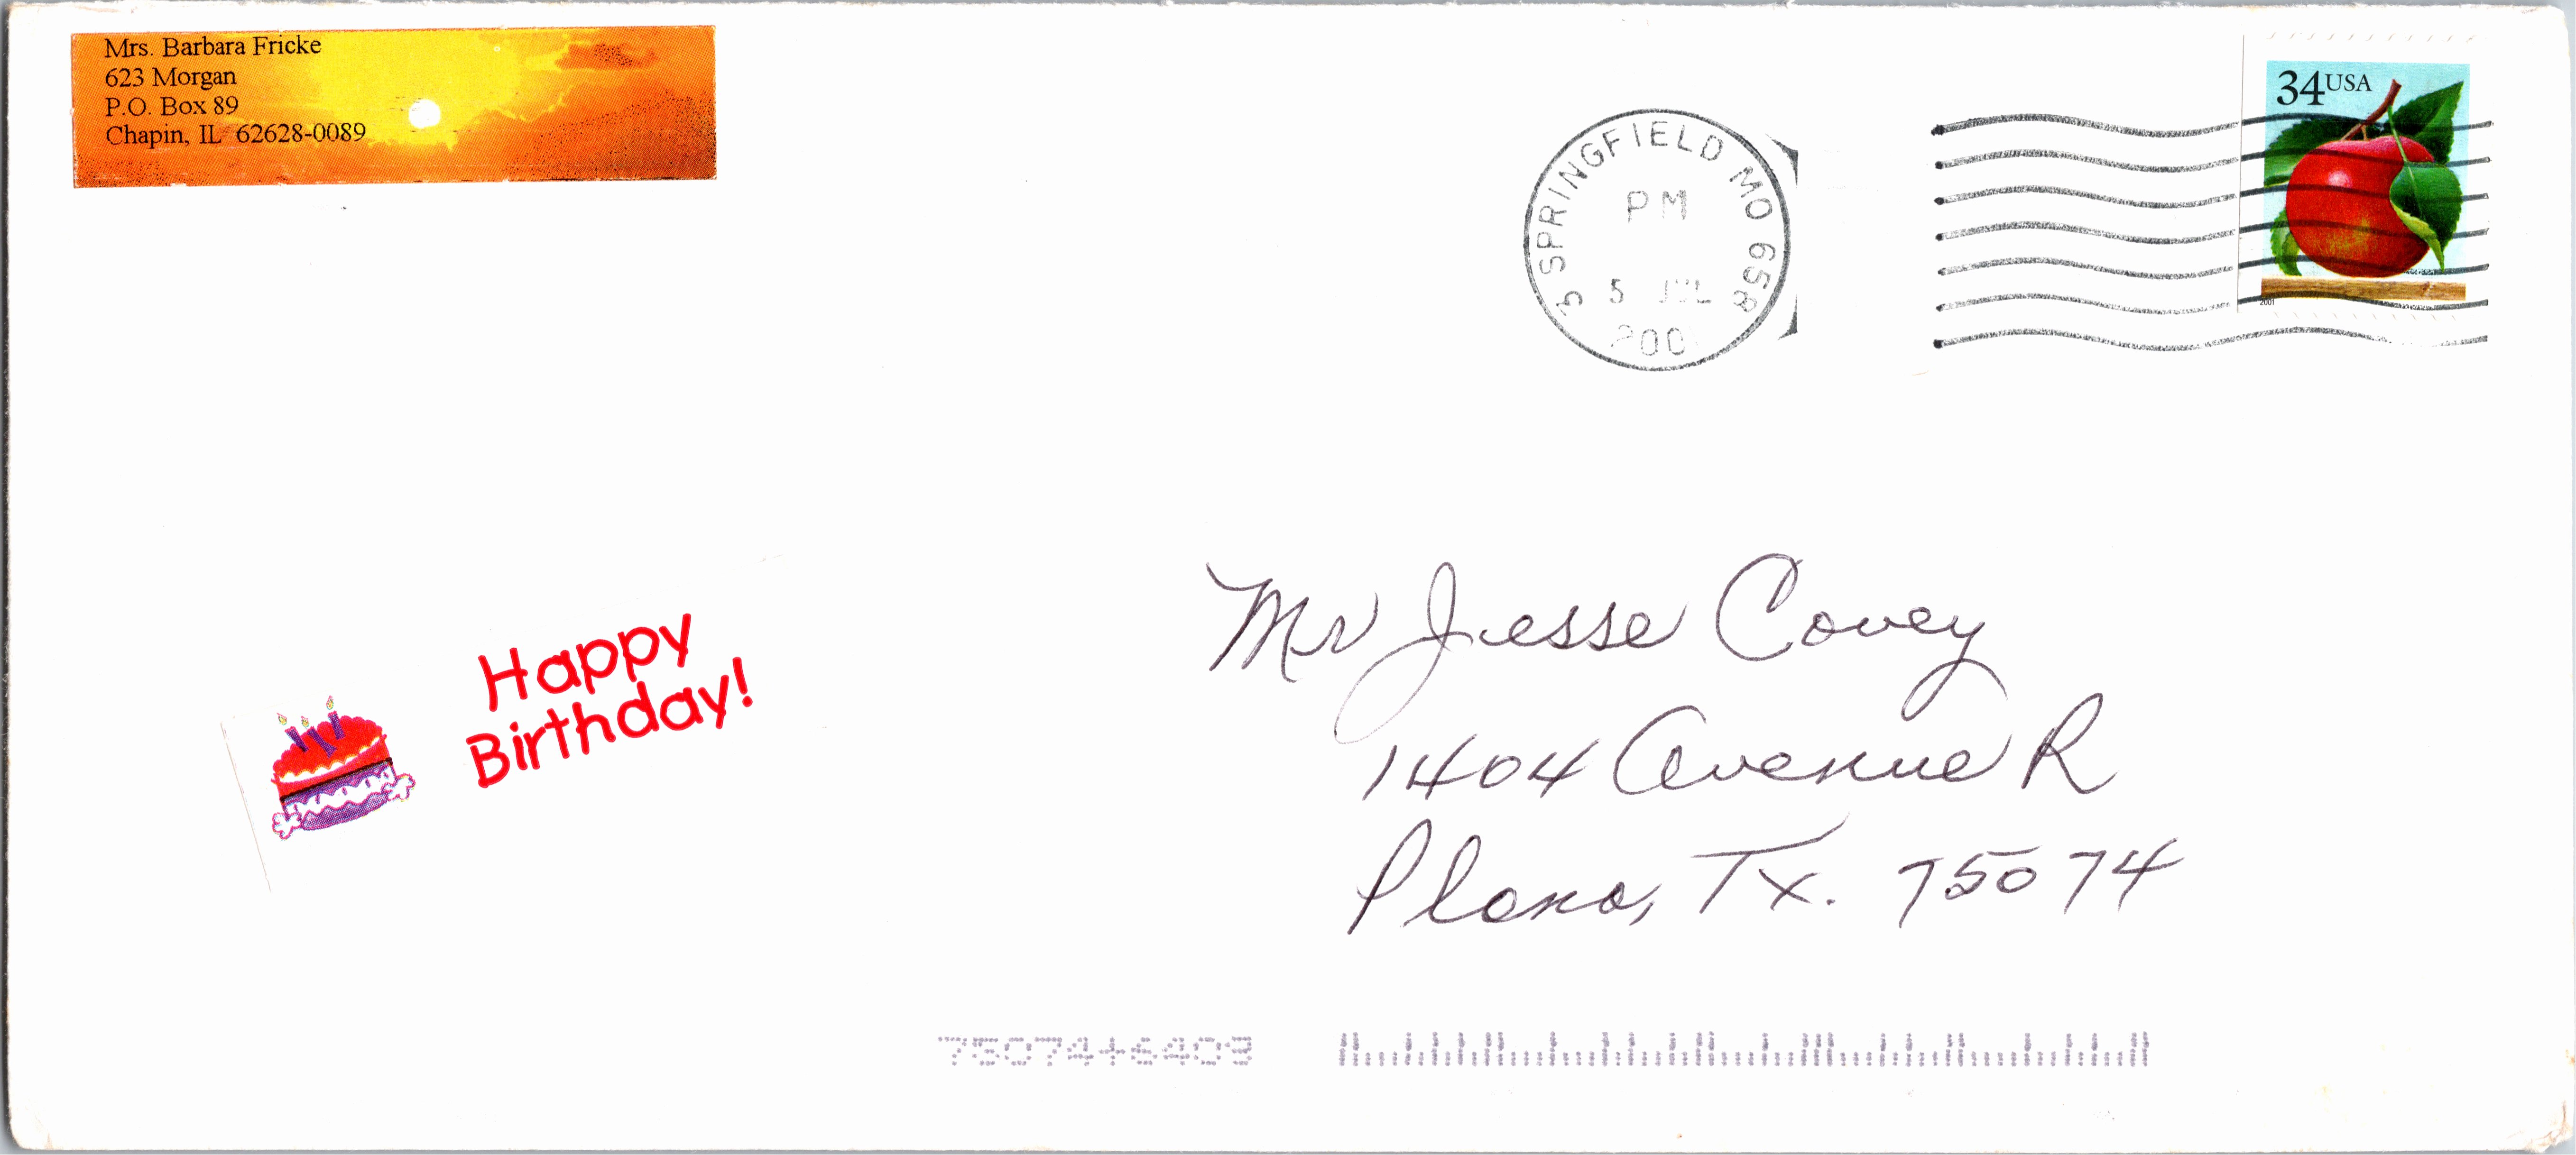 Mrs. Barbara Fricke
623 Morgan
P.O. Box 89
Chapin, IL 62628-0089
34 USA
2001
SPRINGFIELD MO 658
PM
5 JUL
200
Happy
Birthday!
Mr Jesse Covey
1404 Avenue R
Plano, Tx. 75074